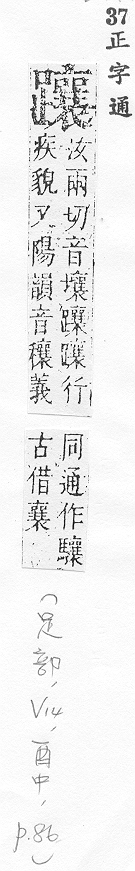 37正字通
躟
汝兩切音壤躟躟行
疾貌又陽韻音穰義
同通作驤
古借襄
(足部, V14, 酉中, p.86)